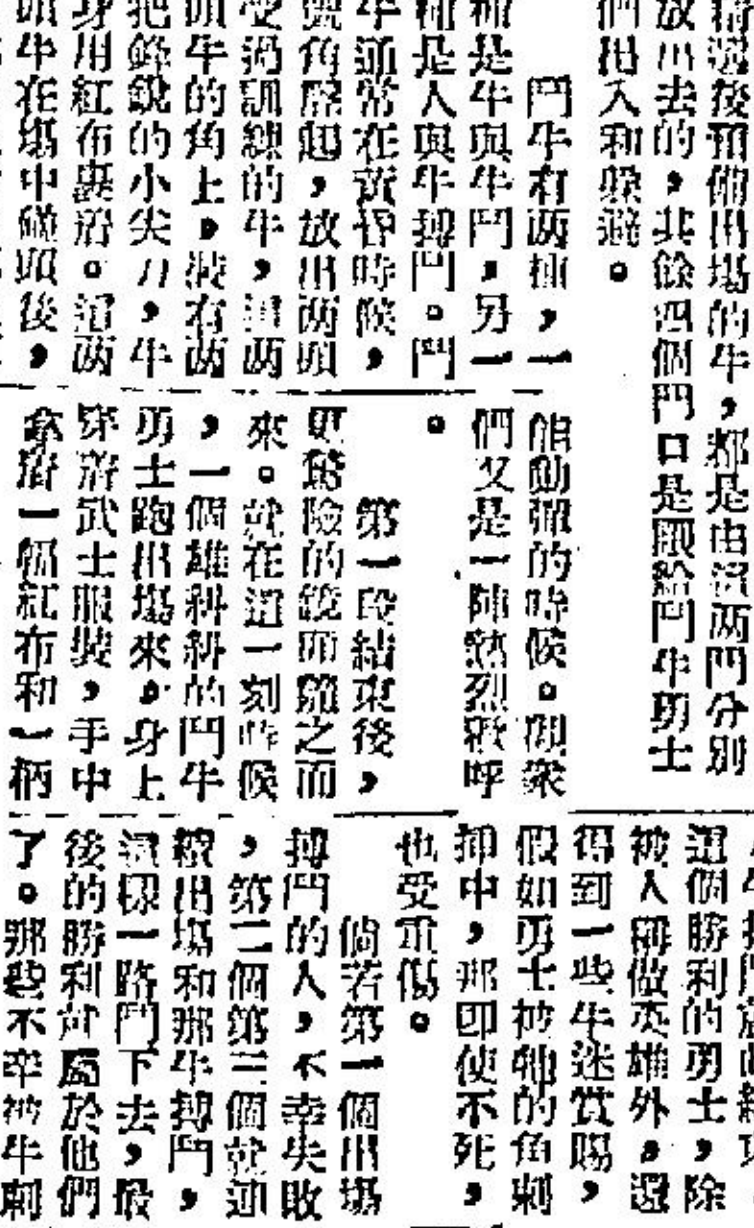 精選後預備出場的牛，都是由這两門分別
放出去的，其餘四個門口是限給鬥牛勇士
們出入和躲避。
鬥牛有两種，一
種是牛與牛鬥，另一
種是人與牛搏鬥。鬥
牛通常在黃昏時候，
號角聲起，放出两頭
受過訓練的牛，這两
頭牛的角上，裝有两
把鋒銳的小尖刀，牛
身用紅布裹着。這两
頭牛在場中碰頭後，
能動彈的時候。觀衆
們又是一陣熱烈歡呼
。
第一段結束後，
更驚險的鏡頭隨之而
來。就在這一刻時候
，一個雄糾糾的鬥牛
勇士跑出場來，身上
穿着武士服裝，手中
拿着一幅紅布和一柄
這個勝利的勇士，除
被人稱做英雄外，還
得到一些牛迷賞賜，
假如勇士被牠的角刺
中，那即使不死，
也受重傷。
倘若第一個出場
搏鬥的人，不幸失敗
，第二個第三個就連
續出場和那牛搏鬥，
這樣一路鬥下去，最
後的勝利就屬於他們
了。那些不幸被牛刺